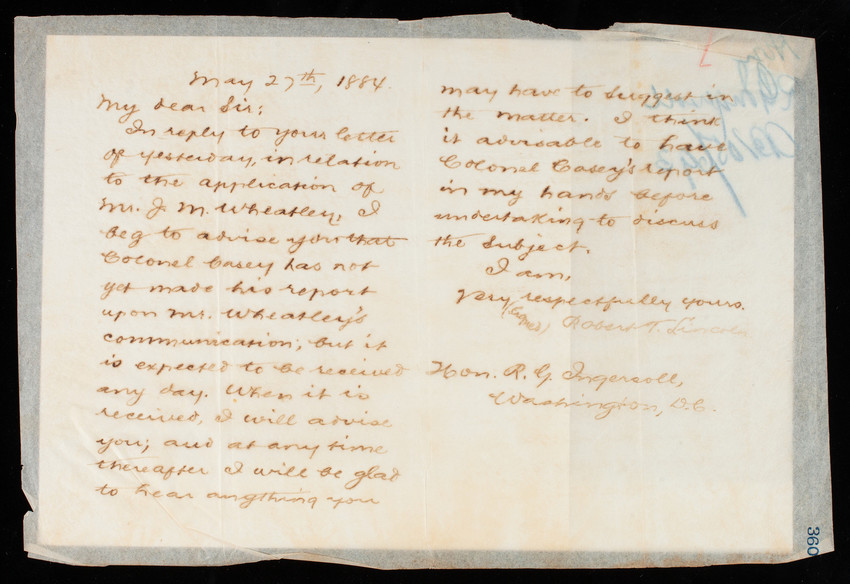 May 27th, 1884.
My dear Sir;
In reply to your letter
of yesterday, in relation
to the application of
Mr. J. M. Wheatley, I
beg to advise you that
Colonel Casey has not
yet made his report
upon Mr. Wheatley's
communication; but it
is expected to be received
any day. When it is
received, I will advise
you; and at any time
thereafter I will be glad
to hear anything you
may have to suggest in
the matter. I think
it advisable to have
Colonel Casey's report
in my hands before
undertaking to discuss
the subject.
I am,
Very respectfully yours.
(Signed) Robert T. Lincoln
Hon. R. G. Ingersoll,
Washington, D.C.
360